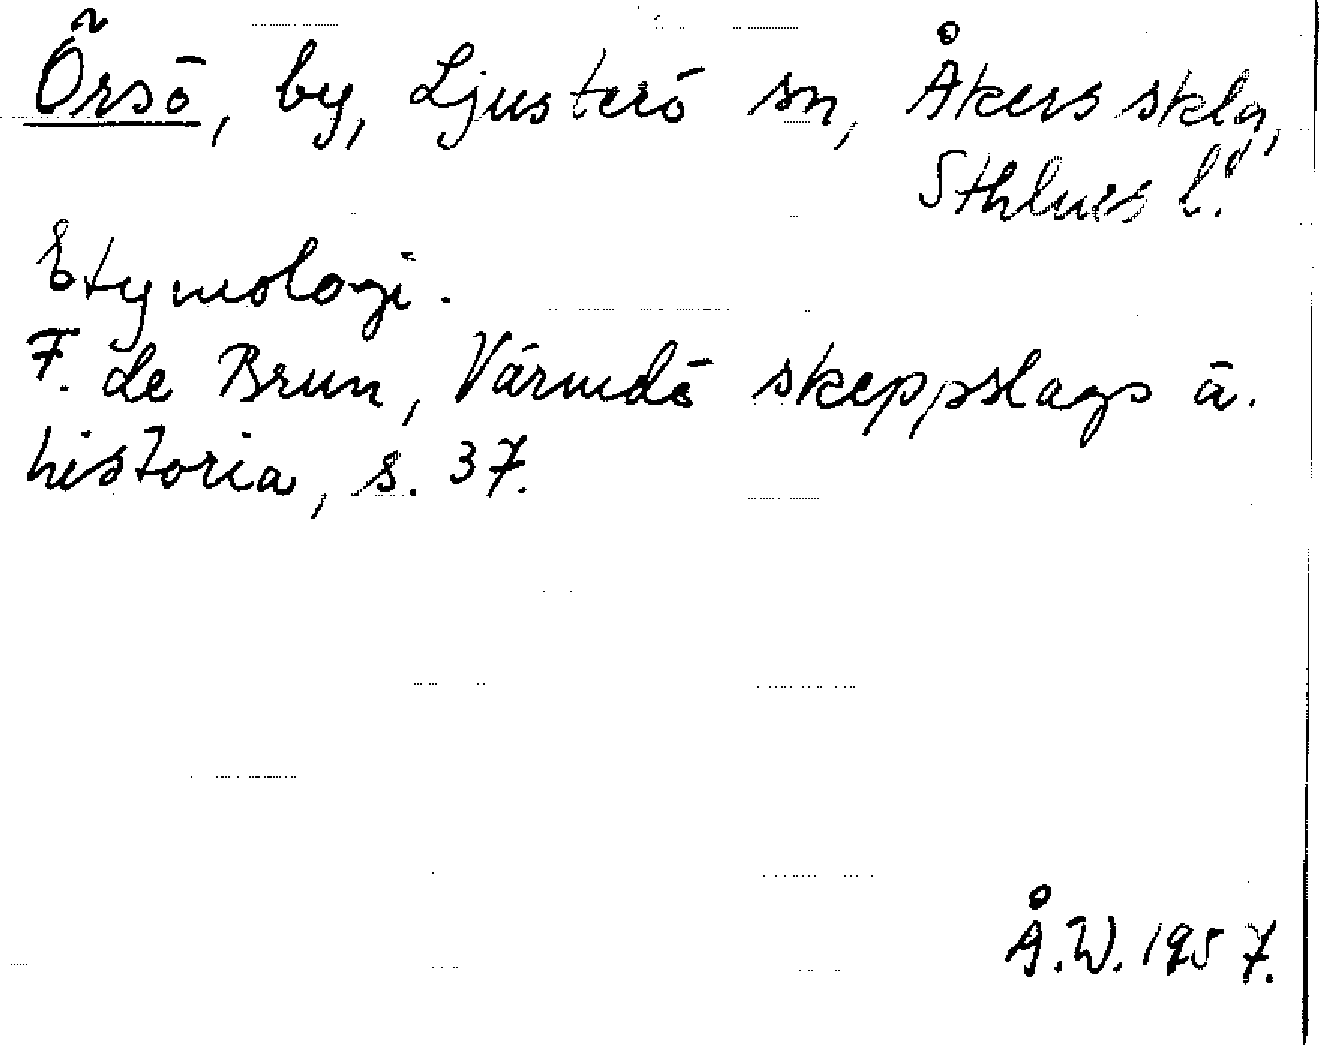 Örsö, by, Ljusterö sn, Åkers sklg,
Sthlms l.
Etymologi.
F. de Brun, Värmdö skeppslags ä.
historia, s. 37.
Å.W. 1957.